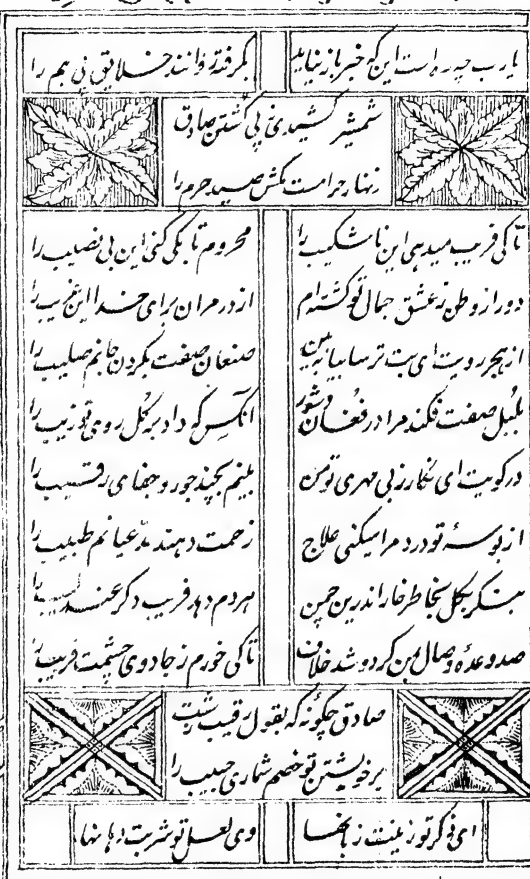 یارب چه ره است این که خبر باز نیاید
بگرفته روانند خلایق پی هم را
شمشیر کشیدی پی کشتن صادق
زنهار حرامست مکش صید حرم را
تا کی فریب میدهی این ناشکیب را
محروم تا بکی کنی این بی نصیب را
دور از وطن ز عشق جمال تو گشته ام
از در مران برای خدا این غریب را
از هجر رویت ای بت ترسا بیا ببین
صنعان صفت بگردن جانم صلیب را
بلبل صفت فکند مرا در فغان و شور
آنکس که داد بر گل روی تو زیب را
در کویت ای نگار ز بی مهری تو من
بینم بچند جور و جفای رقیب را
از بوسهٔ تو درد مرا میکنی علاج
زحمت دهند مدعیانم طبیب را
بنگر بگل بخاطر خار اندرین چمن
هر دم دهد فریب دگر عندلیب را
صد وعدهٔ وصال بمن کرد و شد خلاف
تا کی خورم ز جادوی چشمت فریب را
صادق چگونه که بقول رقیب زشت
بر خویشتن تو خصم شماری حبیب را
ای ذکر تو زینت زبانها
وی لعل تو شربت دهانها